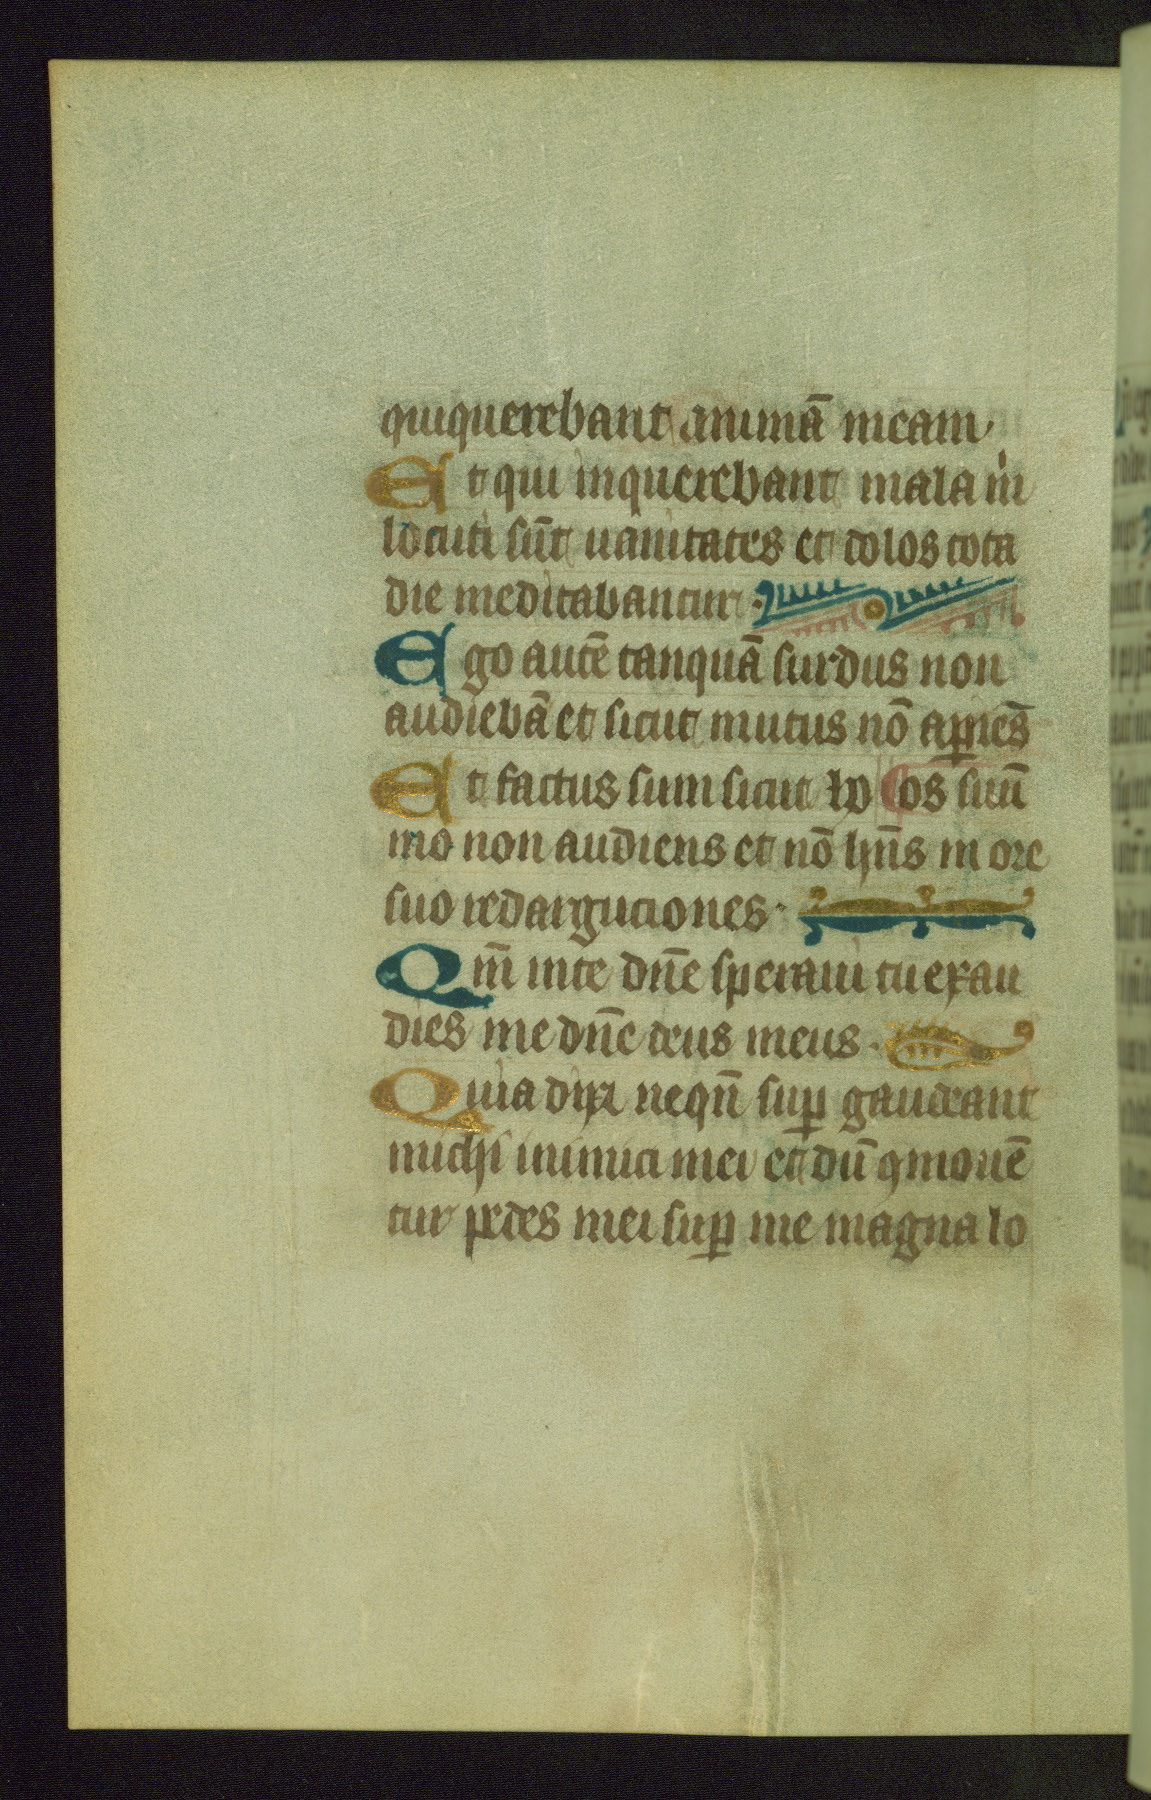 quiquerebant animā meam
Et qui inquerebant mala m̄
locuti sūt uanitates et dolos tota
die meditabantur.
Ego autē tanquā surdus non
audiebā et sicut mutus nō apiēs
Et factus sum sicut ho os suū
mo non audiens et nō hn̄s in ore
suo redarguciones.
Qm̄ inte dn̄e speraui tu exau
dies me dn̄e deus meus.
Quia dixi nequn̄ sup gaudeant
michi inimici mei et dū ꝯmouē
tur pedes mei sup me magna lo